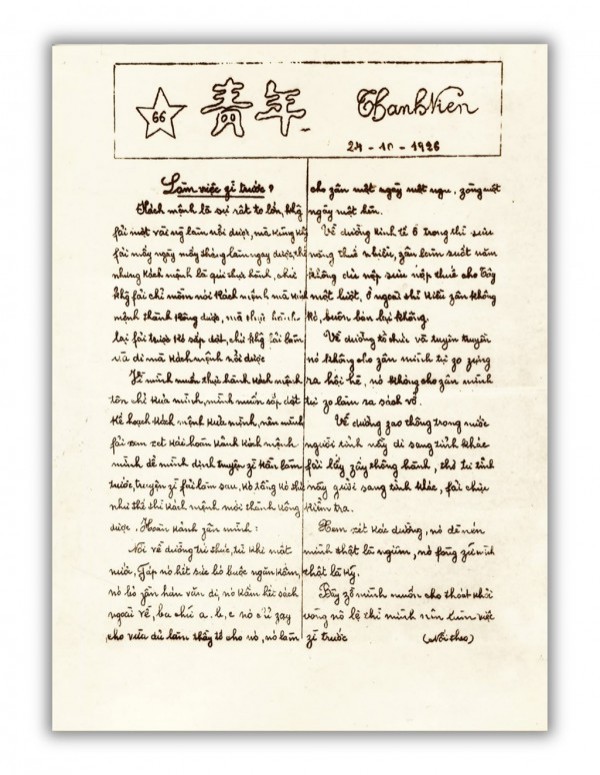 66
青年
Thanh Niên
24 - 10 - 1926
Làm việc zì trước?
Kách mệnh là sự rất to lớn, khg
fải một vài ng làm nổi được, mà kũng khg
fải mấy ngày mấy tháng làm ngay được, thì
nhưng kách mệnh là qúi thực hành, chứ
khg fải chỉ mồm nói kách mệnh mà kách
mệnh thành kông được, mà thực hành
lại fải trước kó sắp đặt, chứ khg fải làm
và đi mà kách mệnh nổi được
Vì mình muốn thực hành kách mệnh
tôn chỉ kủa mình, mình muốn sắp đặt
kế hoạch kách mệnh kủa mình, nên mình
fải xem xét kái hoàn kảnh kách mệnh
mình để mình định truyện zì kần làm
trước, truyện zì fải làm sau, kó tầng kó thứ
như thế thì kách mệnh mới thành kông
được. Hoàn kảnh zân mình:
Nói về đường trí thức, từ khi mất
nước, Tây nó hết sức bó buộc ngăn kấm,
nó bỏ zần hán văn đi, nó kấm hết sách
ngoài về, ba chữ a, b, c nó cứ zạy
cho vừa đủ làm thầy tớ cho nó, nó làm
cho zân một ngày một ngu, zống một
ngày một hèn.
Về đường kinh tế ở trong thì sưu
nặng thuế nhiều, zân làm suốt năm
không đủ nộp sưu nộp thuế cho Tây
một lượt, ở ngoài thì kiều zân không
kó, buôn bán lại không.
Về đường tổ chức và tuyên truyền
nó không cho zân mình tự zo zựng
ra hội hè, nó không cho zân mình
tự zo làm ra sách vở.
Về đường zao thông trong nước
người tỉnh nầy đi sang tỉnh khác
fải lấy zấy thông hành, thơ từ tỉnh
nầy gưởi sang tỉnh khác, fải chịu
kiểm tra.
Xem xét kác đường, nó đè nén
mình thật là ngiêm, nó fòng zữ mình
thật là kỹ.
Bây zờ mình muốn cho thoát khỏi
vòng nô lệ thì mình nên làm việc
zì trước (Nối theo)